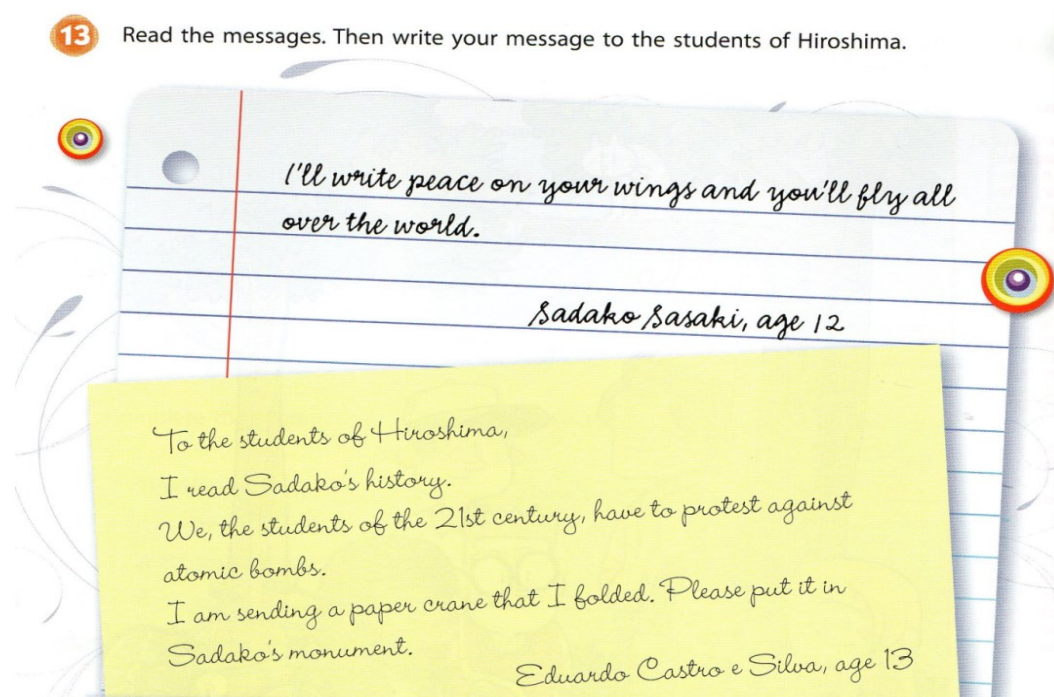 13 Read the messages. Then write your message to the students of Hiroshima.
I'll write peace on your wings and you'll fly all
over the world.
Sadako Sasaki, age 12
To the students of Hiroshima,
I read Sadako's history.
We, the students of the 21st century, have to protest against
atomic bombs.
I am sending a paper crane that I folded. Please put it in
Sadako's monument.
Eduardo Castro e Silva, age 13